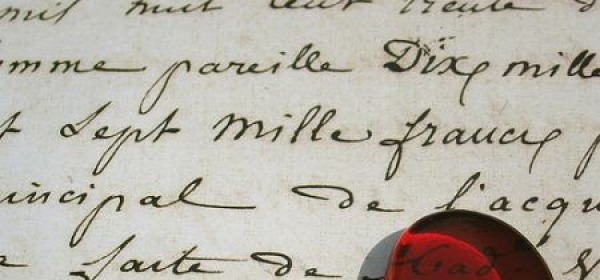 mil huit cent trente d
omme pareille Dix mille
t Sept mille francs p
incipal de l'acqu
e Jacte de